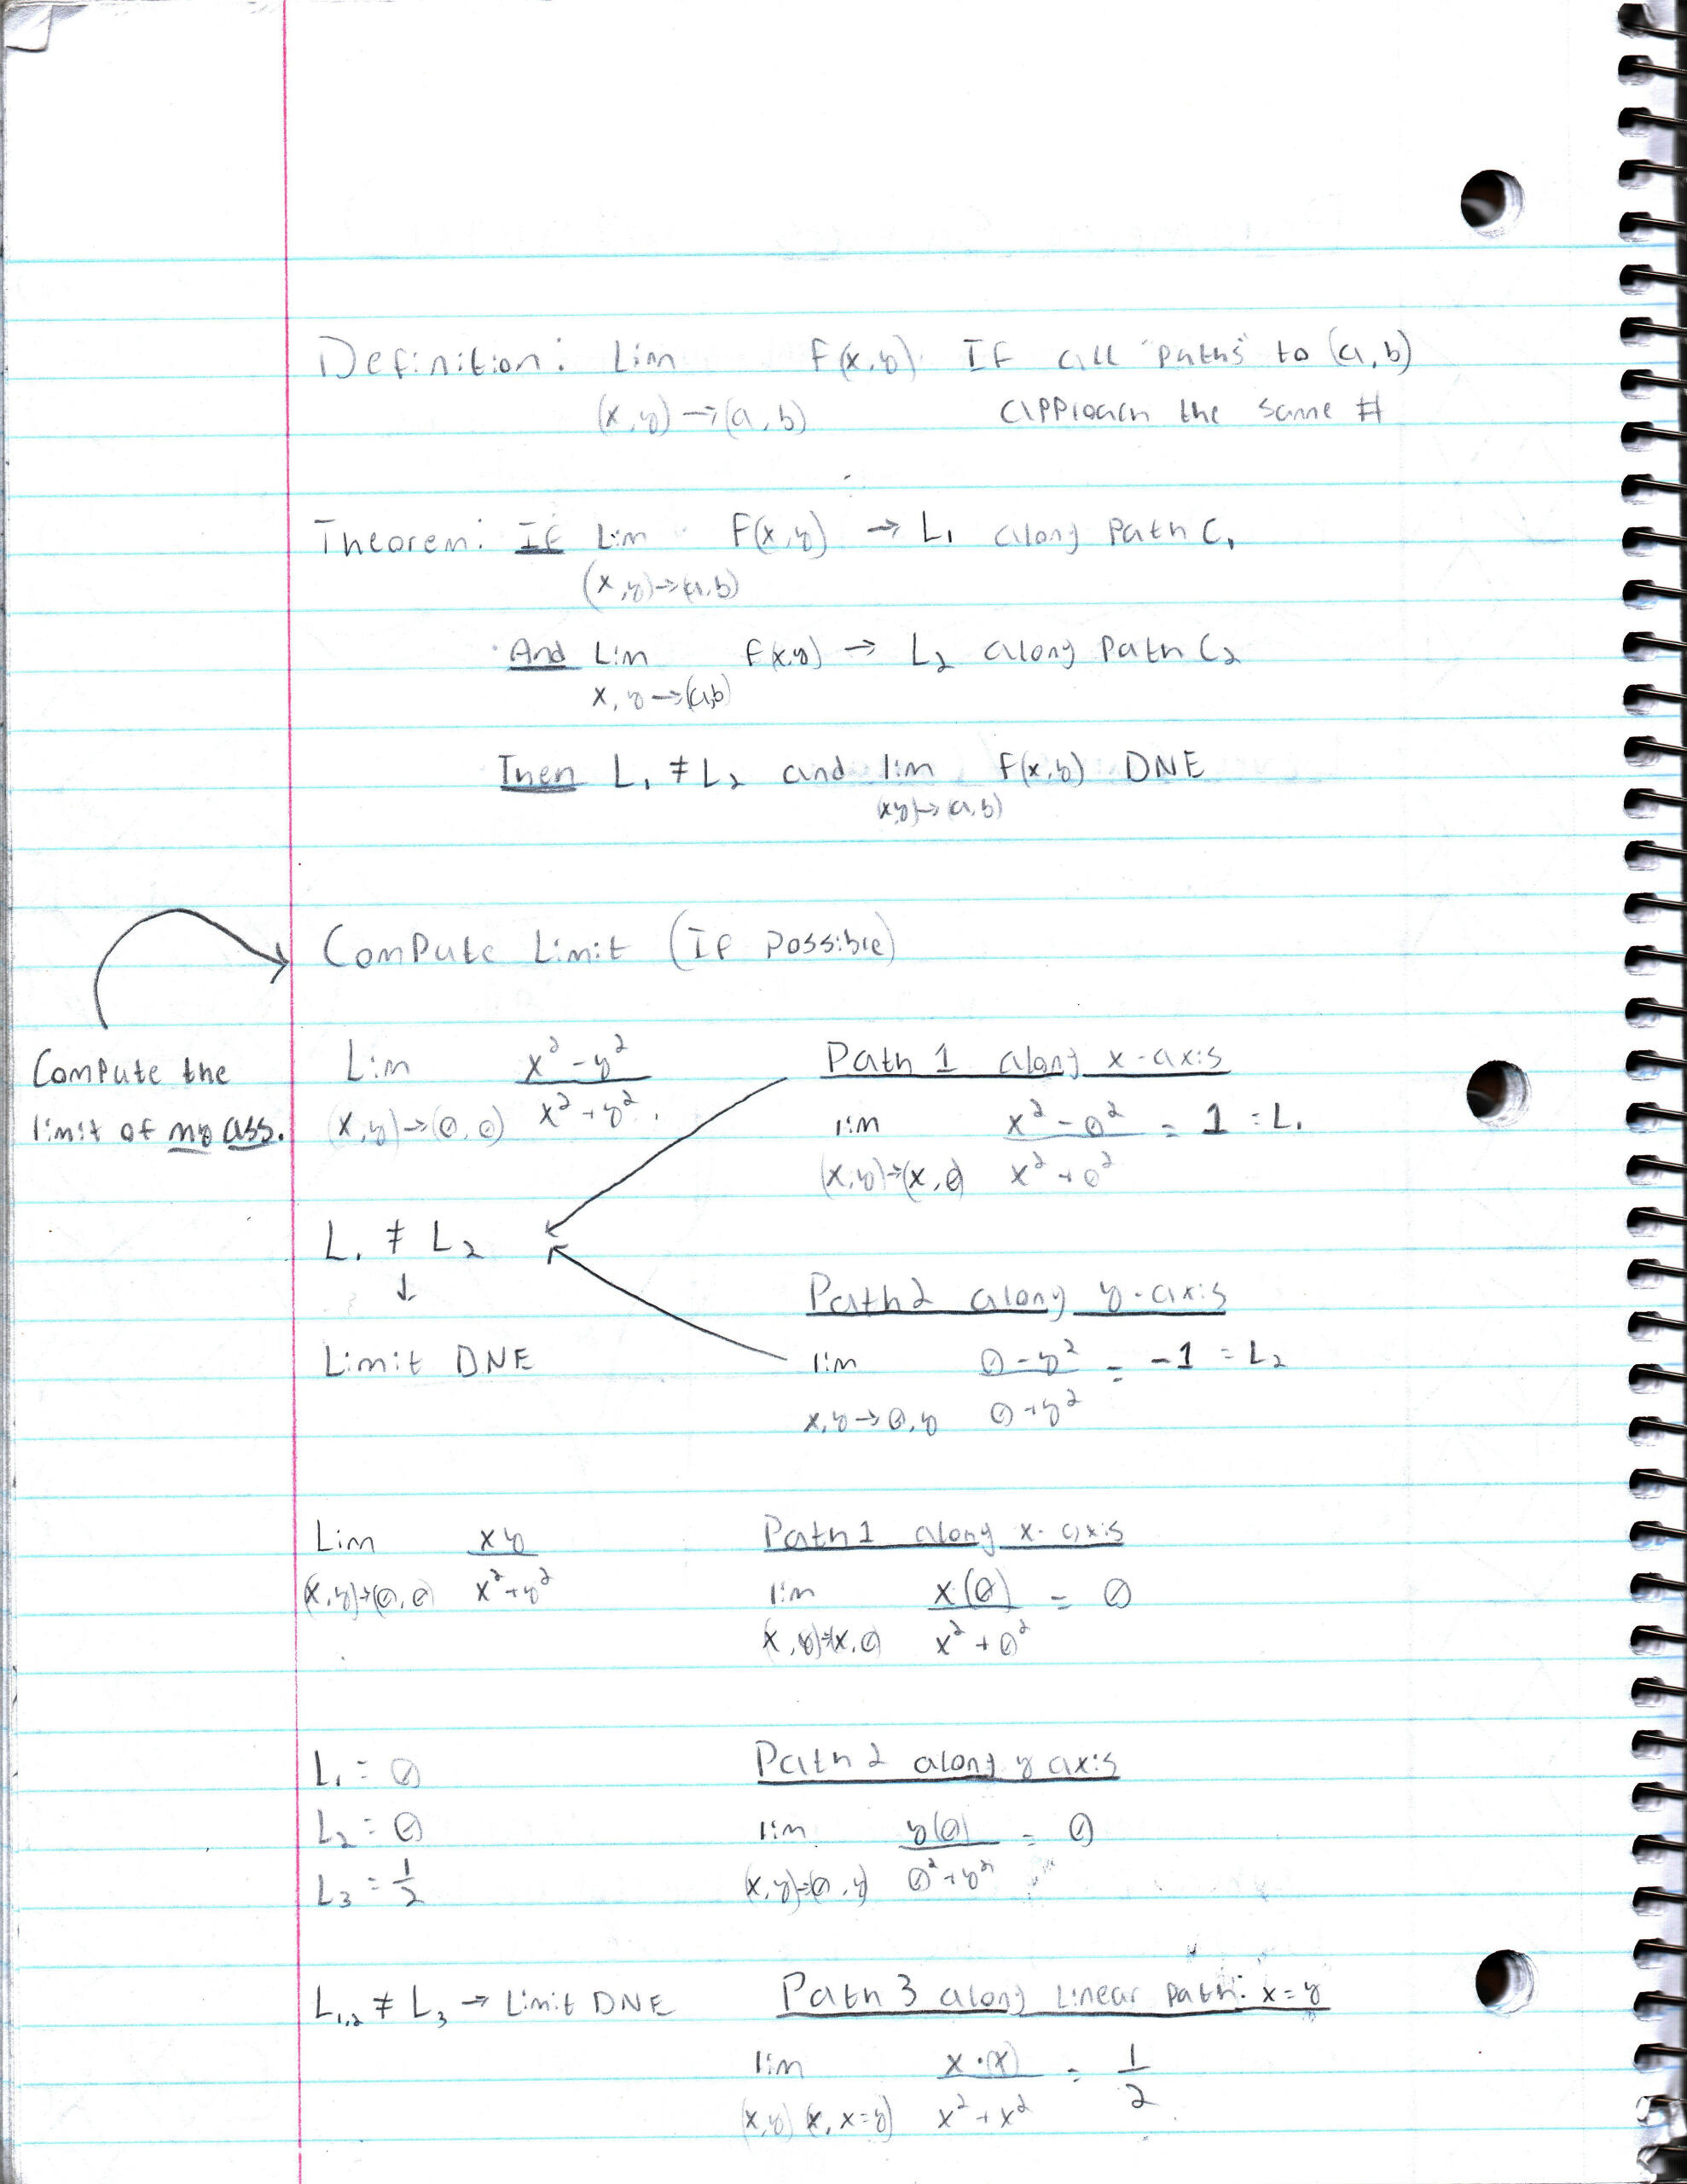 Definition: Lim F(x,y) IF all "paths" to (a,b)
(x,y)→(a,b) approach the same #
Theorem: If Lim F(x,y) → L₁ along Path C₁
(x,y)→(a,b)
And Lim F(x,y) → L₂ along Path C₂
x,y→(a,b)
Then L₁ ≠ L₂ and lim F(x,y) DNE
(x,y)→(a,b)
Compute Limit (If Possible)
Compute the
limit of my ass.
Lim x²-y²
(x,y)→(0,0) x²+y²
Path 1 along x-axis
lim x²-0² = 1 = L₁
(x,y)→(x,0) x²+0²
L₁ ≠ L₂
↓
Limit DNE
Path 2 along y-axis
lim 0-y² = -1 = L₂
x,y→0,y 0+y²
Lim xy
(x,y)→(0,0) x²+y²
Path 1 along x-axis
lim x(0) = 0
(x,y)→(x,0) x²+0²
L₁ = 0
L₂ = 0
L₃ = 1/2
Path 2 along y axis
lim y(0) = 0
(x,y)→(0,y) 0²+y²
L₁,₂ ≠ L₃ → Limit DNE
Path 3 along Linear Path: x=y
lim x·(x) = 1/2
(x,y) (x, x=y) x²+x²